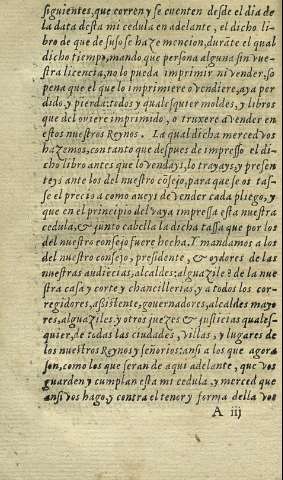 siguientes, que corren y se cuenten desde el dia de
la data desta mi cedula en adelante, el dicho li-
bro de que de suso se haze mencion, durãte el qual
dicho tiempo, mando que persona alguna sin vue-
stra licencia, no lo pueda imprimir ni vender, so
pena que el que lo imprimiere o vendiere, aya per
dido, y pierda todos y qualesquier moldes, y libros
que del oviere imprimido, o truxere a vender en
estos nuestros Reynos. La qual dicha merced vos
hazemos, con tanto que despues de impresso el di-
cho libro antes que lo vendays, lo trayays, y presen
teys ante los del nuestro cõsejo, para que se os tas-
se el precio a como aueys de vender cada pliego, y
que en el principio del vaya impressa esta nuestra
cedula, & junto cabella la dicha tassa que por los
del nuestro consejo fuere hecha. Y mandamos a los
del nuestro consejo, presidente, & oydores de las
nuestras audiẽcias, alcaldes: alguaziles de la nue
stra casa y corte y chancillerias, y a todos los cor-
regidores, assistente, governadores, alcaldes mayo
res, alguaziles, y otros juezes & justicias quales-
quier, de todas las ciudades, villas, y lugares de
los nuestros Reynos y señorios: ansi a los que agora
son, como los que seran de aqui adelante, que vos
guarden y cumplan esta mi cedula, y merced que
ansi vos hago, y contra el tenor y forma della vos
A iij